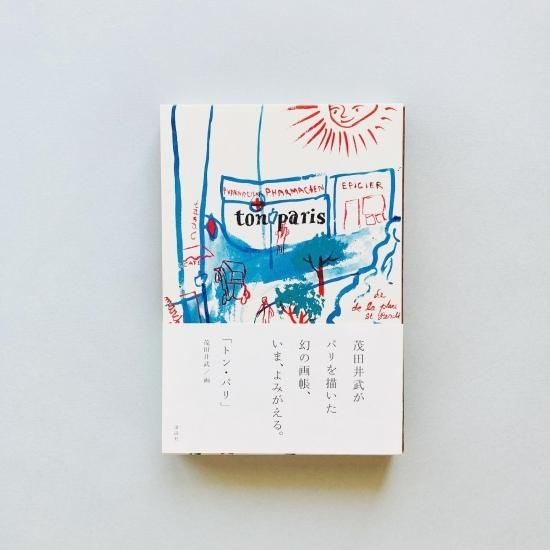 PHARMACIE PHARMACIEN
EPICIER
ton paris
CAFE
de
de la place
茂田井武が
パリを描いた
幻の画帳、
いま、よみがえる。
「トン・パリ」
茂田井武／画
講談社